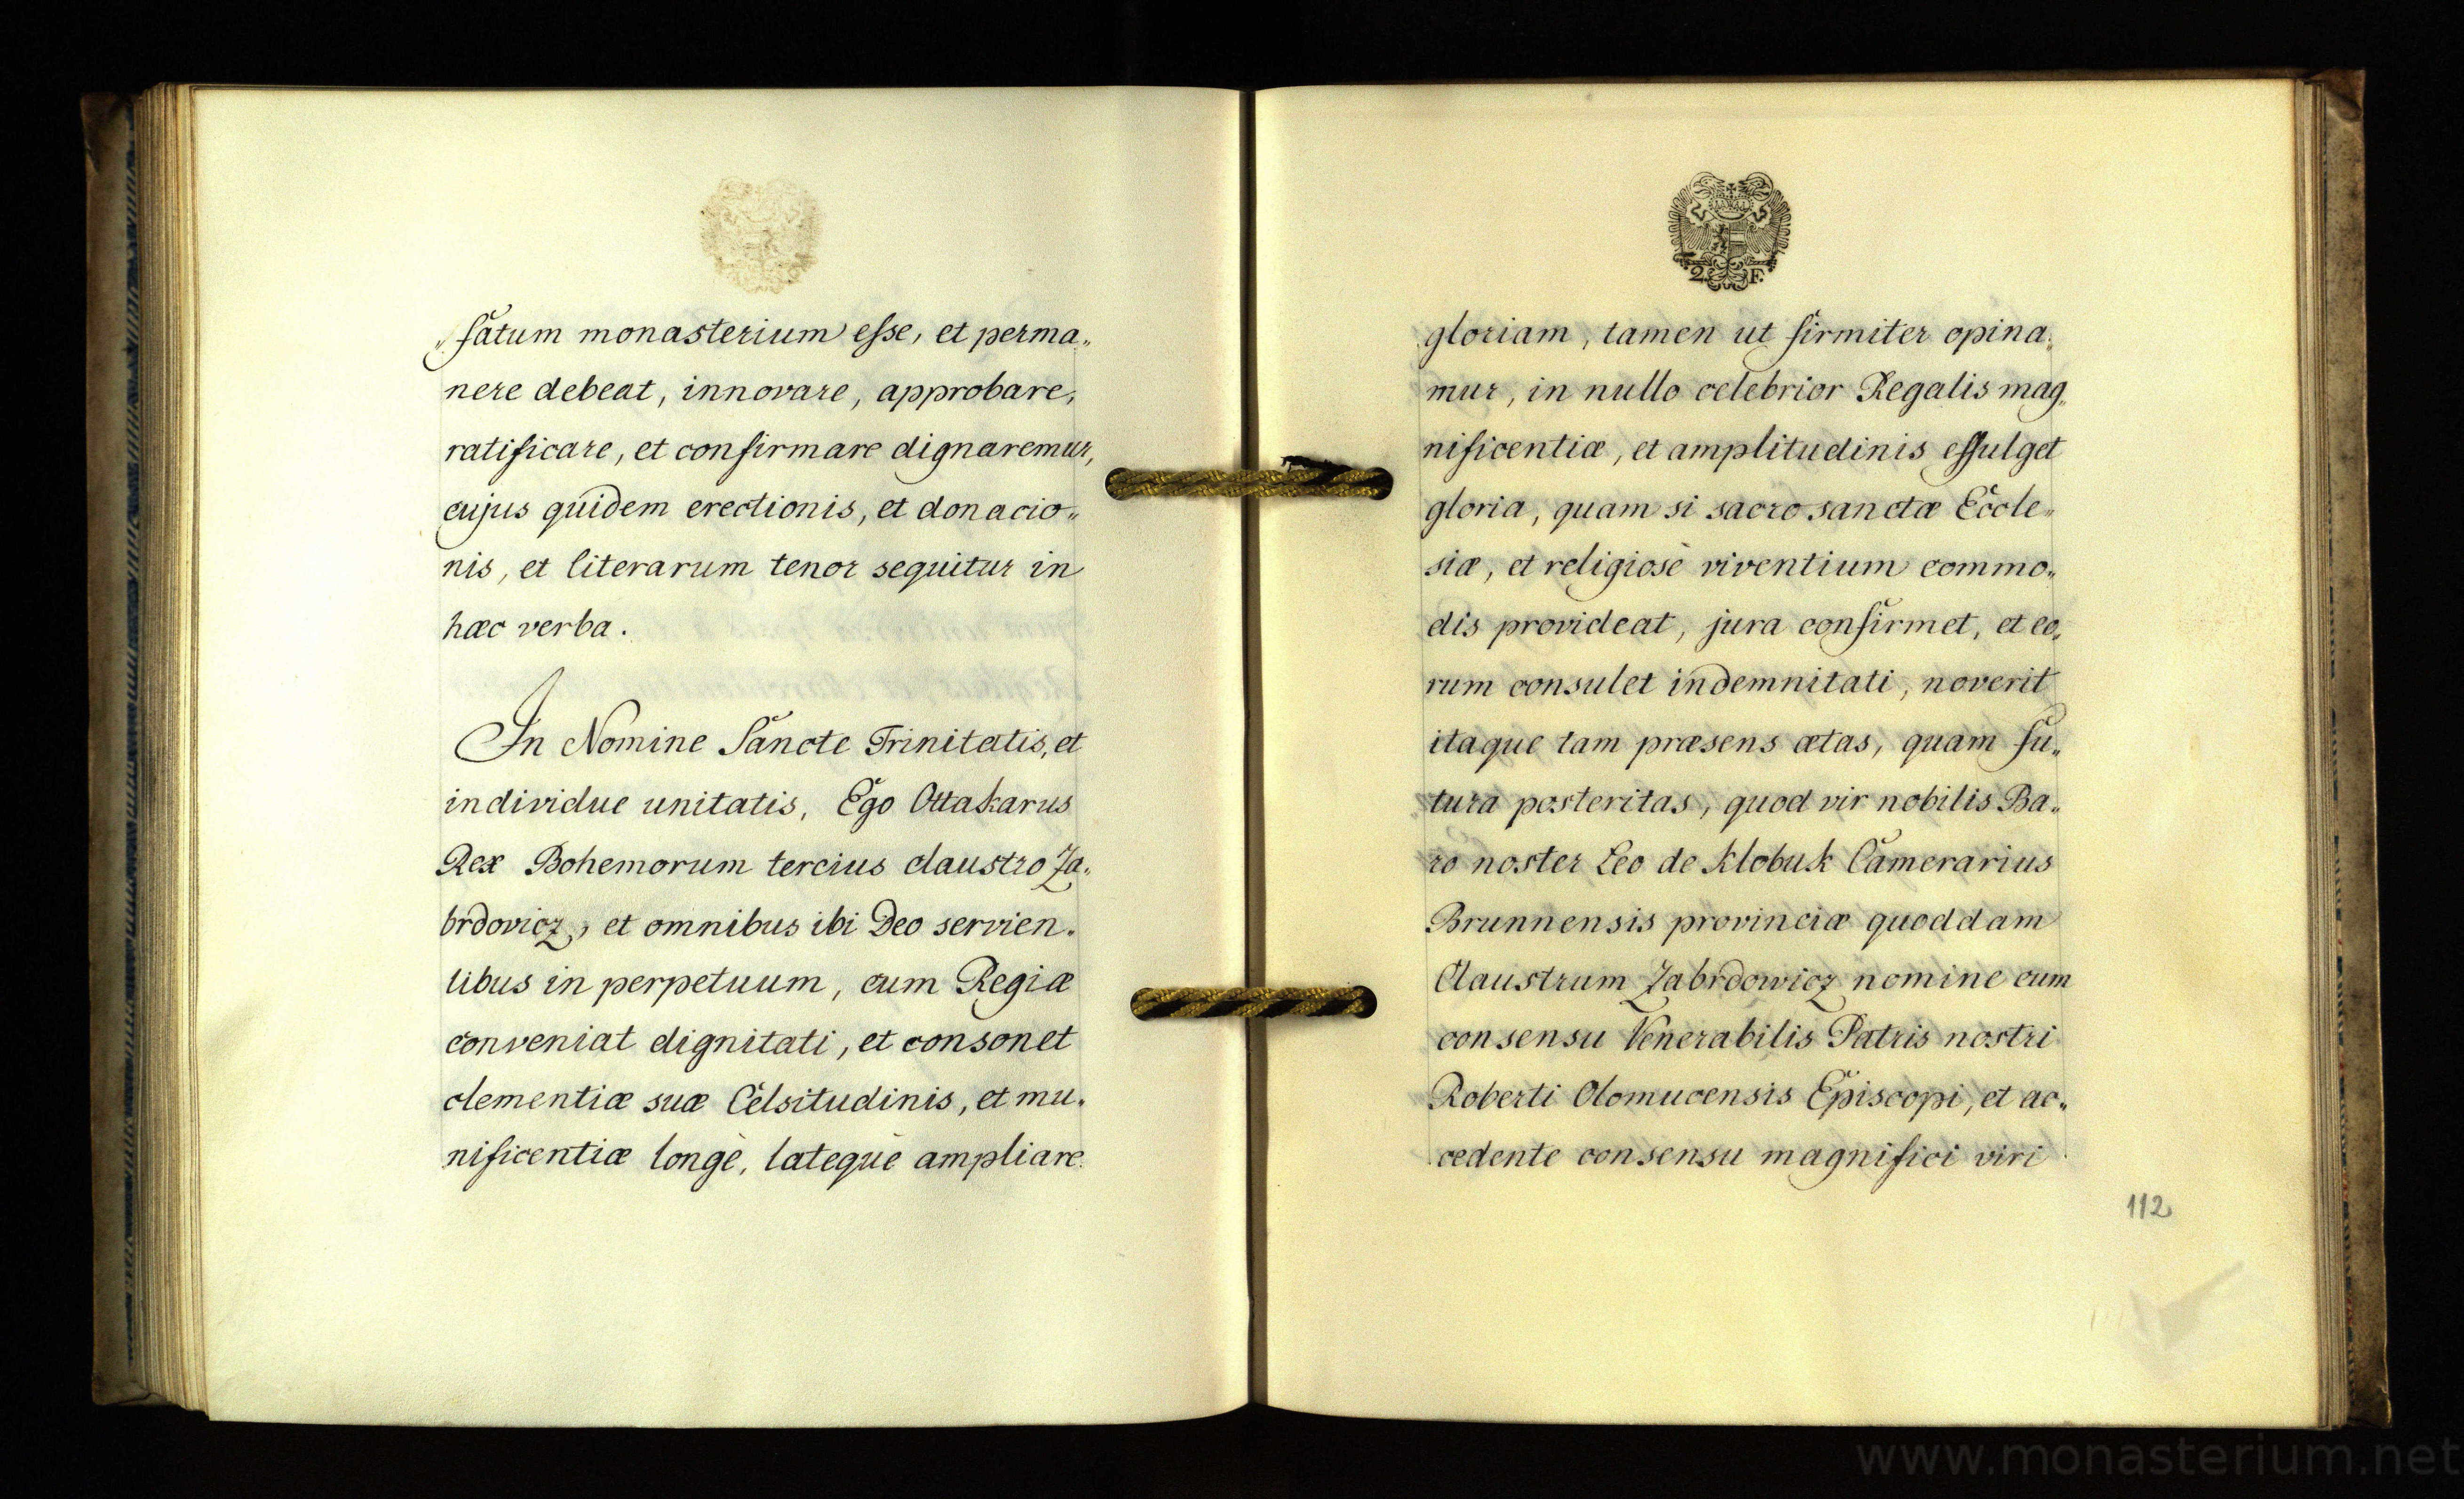 „fatum monasterium esse, et perma„
nere debeat, innovare, approbare,
ratificare, et confirmare dignaremur,
cujus quidem erectionis, et donacio„
nis, et literarum tenor sequitur in
hæc verba.
In Nomine Sancte Trinitatis, et
individue unitatis, Ego Ottakarus
Rex Bohemorum tercius claustro Za„
brdovicz, et omnibus ibi Deo servien„
tibus in perpetuum, cum Regiæ
conveniat dignitati, et consonet
clementiæ suæ Celsitudinis, et mu„
nificentiæ longè, latequè ampliare
2. F.
gloriam, tamen ut firmiter opina„
mur, in nullo celebrior Regalis mag„
nificentiæ, et amplitudinis effulget
gloria, quam si sacro sanctæ Eccle„
siæ, et religiosè viventium commo„
dis provideat, jura confirmet, et eo„
rum consulet indemnitati, noverit
itaque tam præsens ætas, quam fu„
tura posteritas, quod vir nobilis Ba„
ro noster Leo de Klobuk Camerarius
Brunnensis provinciæ quoddam
Claustrum Zabrdowicz nomine cum
consensu Venerabilis Patris nostri
Roberti Olomucensis Episcopi, et ac„
cedente consensu magnifici viri
112
www.monasterium.net